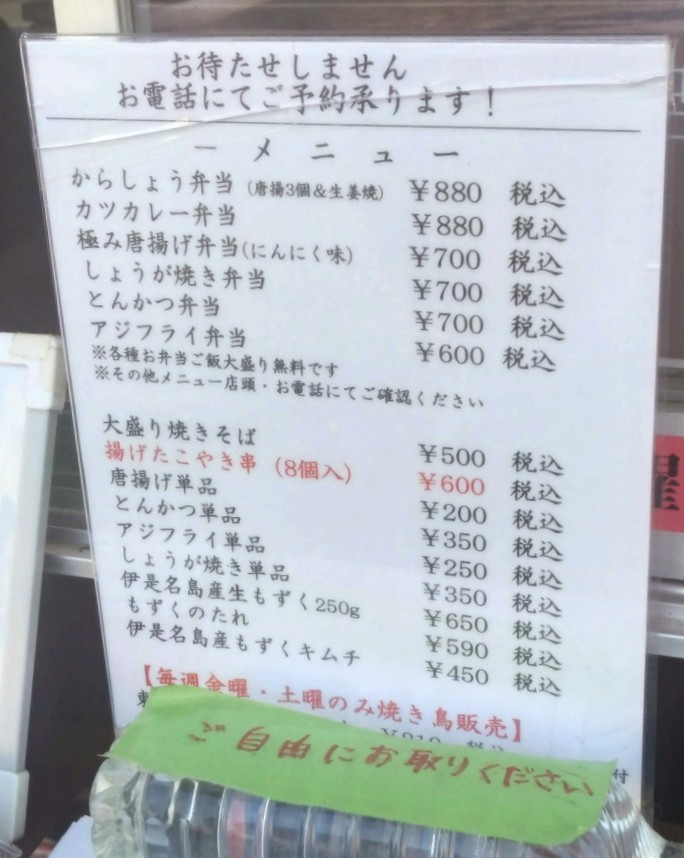 お待たせしません
お電話にてご予約承ります！
－ メ ニ ュ ー
からしょう弁当 (唐揚3個&生姜焼) ￥880 税込
カツカレー弁当 ￥880 税込
極み唐揚げ弁当(にんにく味) ￥700 税込
しょうが焼き弁当 ￥700 税込
とんかつ弁当 ￥700 税込
アジフライ弁当 ￥600 税込
※各種お弁当ご飯大盛り無料です
※その他メニュー店頭・お電話にてご確認ください
大盛り焼きそば ￥500 税込
揚げたこやき串 (8個入) ￥600 税込
唐揚げ単品 ￥200 税込
とんかつ単品 ￥350 税込
アジフライ単品 ￥250 税込
しょうが焼き単品 ￥350 税込
伊是名島産生もずく250g ￥650 税込
もずくのたれ ￥590 税込
伊是名島産もずくキムチ ￥450 税込
【毎週金曜・土曜のみ焼き鳥販売】
ご自由にお取りください
付